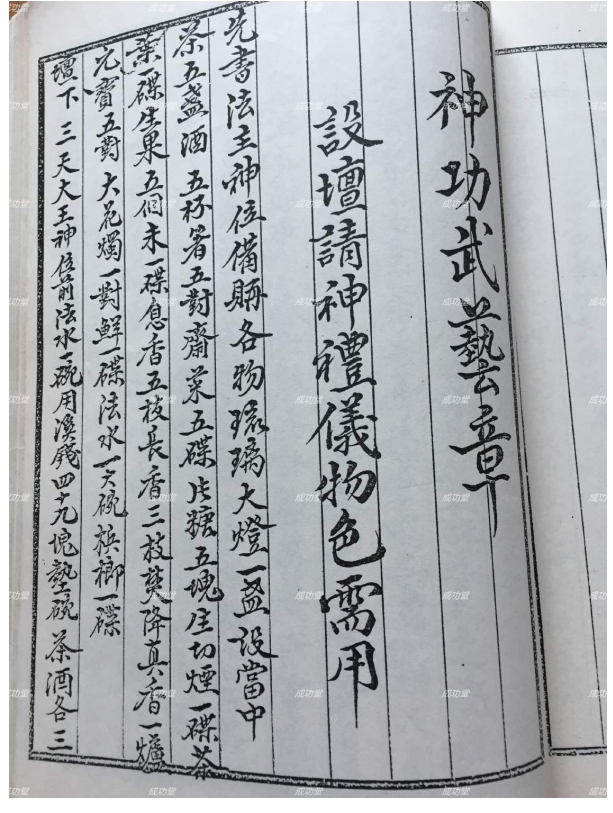 神功武藝章
設壇請神禮儀物色需用
先書法主神位備賻各物琉璃大燈一盞設當中
茶五盞酒五杯箸五對齋菜五碟片糖五塊生切煙一碟茶
葉一碟生果五個未一碟息香五枝長香三枝焚降真香一爐
元寶五對大花燭一對鮮一碟法水一大碗檳榔一碟
壇下三天大王神位前法水一碗用溪錢四十九塊墊碗茶酒各三
成功堂